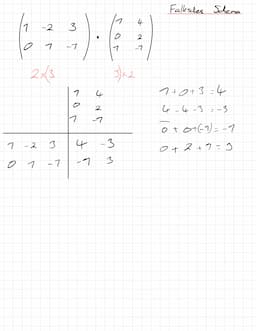 Falksches Schema
( 1 -2 3 ) · ( 1 4 )
( 0 1 -1 ) ( 0 2 )
( 1 -1 )
2x(3 3)x2
1 4
0 2
1 -1
1 -2 3 4 -3
0 1 -1 -1 3
1+0+3=4
4-4-3=-3
0+0+(-1)=-1
0+2+1=3